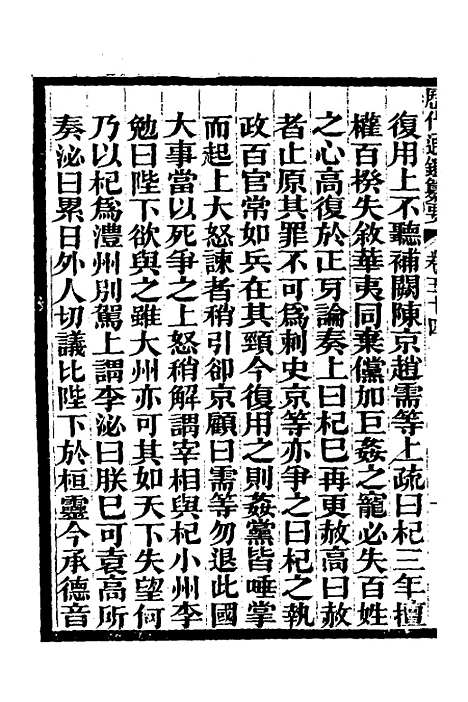 歷代通鑑纂要 卷五十四
復用上不聽補闕陳京趙需等上疏曰杞三年擅
權百揆失敘華夷同棄儻加巨姦之寵必失百姓
之心高復於正牙論奏上曰杞巳再更赦高曰赦
者止原其罪不可爲刺史京等亦爭之曰杞之執
政百官常如兵在其頸今復用之則姦黨皆唾掌
而起上大怒諫者稍引卻京顧曰需等勿退此國
大事當以死爭之上怒稍解謂宰相與杞小州李
勉曰陛下欲與之雖大州亦可其如天下失望何
乃以杞爲澧州別駕上謂李泌曰朕巳可袁高所
奏泌曰累日外人切議比陛下於桓靈今承德音